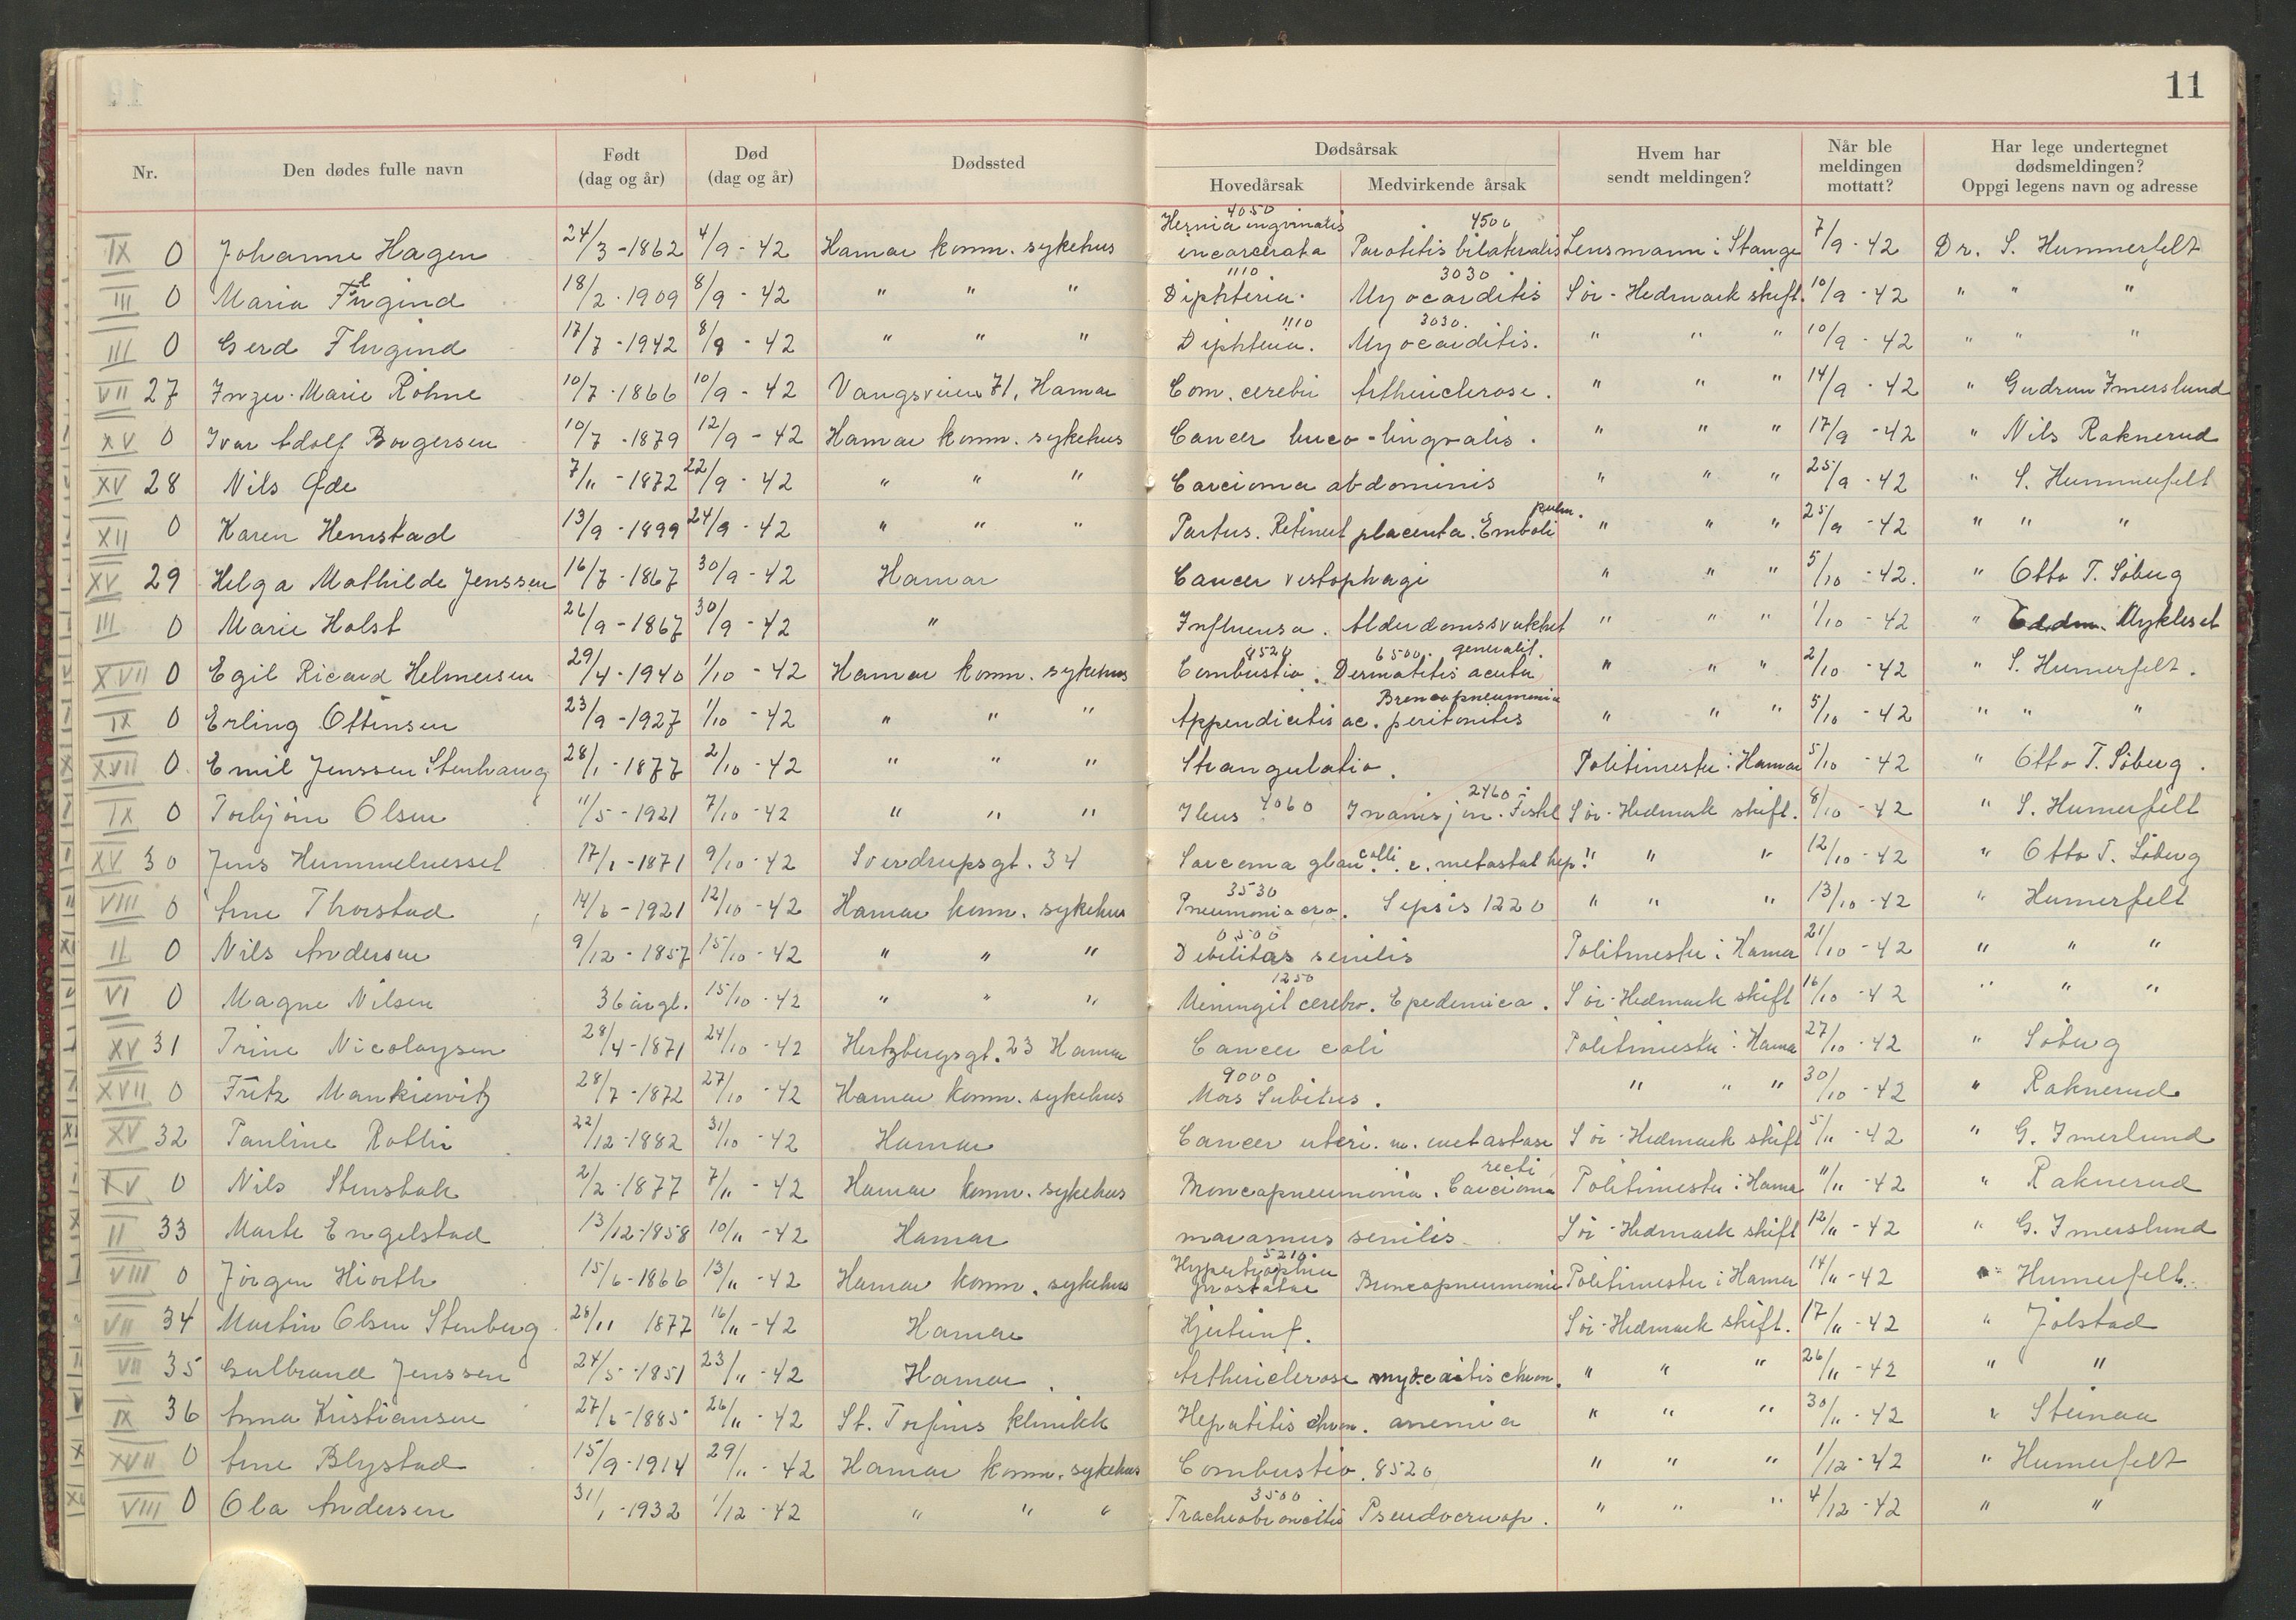 11
Nr. Den dødes fulle navn Født (dag og år) Død (dag og år) Dødssted Dødsårsak Hovedårsak Medvirkende årsak Hvem har sendt meldingen? Når ble meldingen mottatt? Har lege undertegnet dødsmeldingen? Oppgi legens navn og adresse
IX 0 Johanne Hagen 24/3-1862 4/9-42 Hamar komm. sykehus Hernia ingvinalis 4050 incarcerata Parotitis bilateralis 4500 Lensmann i Stange 7/9-42 Dr. S. Hummerfelt
III 0 Maria Flugind 18/2.1909 8/9-42 " " " Diphteria. 1110 Myocarditis 3030 Sör-Hedmark skift. 10/9-42 " " "
III 0 Gerd Flugind 17/7-1942 8/9-42 " " " Diphteria. 1110 Myocarditis. 3030. " " " 10/9-42 " " "
VII 27 Inger-Marie Röhne 10/7-1866 10/9-42 Vangsveien 71, Hamar Com. cerebri Arthericlerose. " " " 14/9-42 " Gudrun Imerslund
XV 0 Ivar Adolf Borgersen 10/7-1879 12/9-42 Hamar komm. sykehus Cancer buco-lingvalis. " " " 17/9-42 " Nils Raknerud
XV 28 Nils Öde 7/11-1872 22/9-42 " " " Carcioma abdominis " " " 25/9-42 " S. Hummerfelt
XII 0 Karen Hemstad 13/9-1899 24/9-42 " " " Partus. Retinert placenta. Emboli pulm. " " " 25/9-42 " " "
XV 29 Helga Mathilde Jenssen 16/7-1867 30/9-42 Hamar Cancer vestophagi " " " 5/10-42. " Otto T. Söberg
III 0 Marie Holst 26/9-1867 30/9-42 " Influensa. Alderdomssvakhet " " " 1/10-42 " Eddm. Mykleset
XVII 0 Egil Ricard Helmersen 29/4-1940 1/10-42 Hamar komm. sykehus Combustio. 8520 Dermatitis acuta 6500. generalit. " " " 2/10-42 " S. Humerfelt.
IX 0 Erling Ottinsen 23/9-1927 1/10-42 " " " Appendicitis ac. peritonitis Broncopneumonia " " " 5/10-42 " " "
XVII 0 Emil Jenssen Stenhaug 28/1-1877 2/10-42 " " " Strangulatio. Politimester i Hamar 5/10-42 " Otto T. Söberg.
IX 0 Torbjörn Olsen 11/5-1921 7/10-42 " " " Ileus 4060 Inanisjon. Fistel 2460 Sör-Hedmark skift. 8/10-42 " S. Humerfelt
XV 30 Jens Hummelvesset 17/1-1871 9/10-42 Sverdrupsgt. 34 Sarcoma glan. colli. c. metastat hep. " " " 12/10-42 " Otto T. Söberg
VIII 0 Arne Thorstad 14/6-1921 12/10-42 Hamar komm. sykehus Pneumonia cro. 3530 Sepsis 1220 " " " 13/10-42 " Humerfelt
II 0 Nils Andersen 9/12-1857 15/10-42 " " " Debilitas senilis 0500 Politimester i Hamar 21/10-42 " " "
VI 0 Magne Nilsen 36 år gl. 15/10-42 " " " Meningit cerebro. Epedemica. 1250 Sör-Hedmark skift 16/10-42 " " "
XV 31 Trine Nicolaysen 28/4-1871 24/10-42 Hertzbergsgt. 23 Hamar Cancer coli Politimester i Hamar 27/10-42 " Söberg
XVII 0 Fritz Mankiewitz 28/7-1872 27/10-42 Hamar komm. sykehus Mors Subitus. 9000 " " " 30/10-42 " Raknerud
XV 32 Pauline Rotli 22/12-1882 31/10-42 Hamar Cancer uteri. m. metastase Sör-Hedmark skift 5/11-42 " G. Imerlund
XV 0 Nils Stenstak 2/2-1877 7/11-42 Hamar komm. sykehus Broncopneumonia. Carcioma recti Politimester i Hamar 11/11-42 " Raknerud
II 33 Marte Engelstad 13/12-1858 10/11-42 Hamar maramus senilis Sör-Hedmark skift 12/11-42 " G. Imerslund
VIII 0 Jörgen Hiorth 15/6-1866 13/11-42 Hamar komm. sykehus Hypertrophia 5210. prostatae Broncopneumonia Politimester i Hamar 14/11-42 " Humerfelt.
VII 34 Martin Olsen Stenberg 28/11 1877 16/11-42 Hamar Hjerteinf. Sör-Hedmark skift. 17/11-42 " Jölstad
VII 35 Gulbrand Jenssen 24/5-1851 23/11-42 Hamar. Arthericlerose myocaitis chron. " " " 26/11-42 " "
IX 36 Anna Kristiansen 27/6-1885 26/11-42 St. Torfins klinikk Hepatitis chron. anemia " " " 30/11-42 " Steinaa
XVII 0 Arne Blystad 15/9-1914 29/11-42 Hamar komm. sykehus Combustio. 8520 " " " 1/12-42 " Humerfelt
VIII 0 Ola Andersen 31/1-1932 1/12-42 " " " Tracheobroncitis 3500 Pseudocroup. " " " 4/12-42 " "